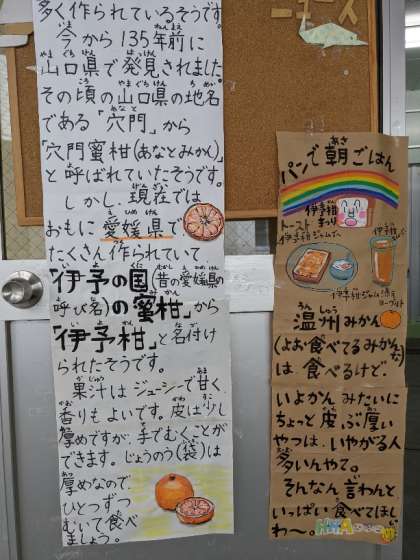 多く作られているそうです。
今から135年前に
山口県で発見されました。
その頃の山口県の地名
である「穴門」から
「穴門蜜柑(あなとみかん)」
と呼ばれていたそうです。
しかし、現在では
おもに愛媛県で
たくさん作られていて
「伊予の国(昔の愛媛県の
呼び名)の蜜柑」から
「伊予柑」と名付け
られたそうです。
果汁はジューシーで甘く、
香りもよいです。皮は少し
厚めですが、手でむくことが
できます。じょうのう(袋)は
厚めなので
ひとつずつ
むいて食べ
ましょう。
パンで朝ごはん
伊予柑
まつり
トースト
伊予柑ジャムで
伊予柑ジュース
伊予柑ジャム添え
ヨーグルト
温州みかん
(よお食べてるみかん
だ)
は、食べるけど、
いよかんみたいに
ちょっと皮ぶ厚い
やつは、いやがる人
多いんやて。
そんなん言わんと
いっぱい食べてほし
わ〜。